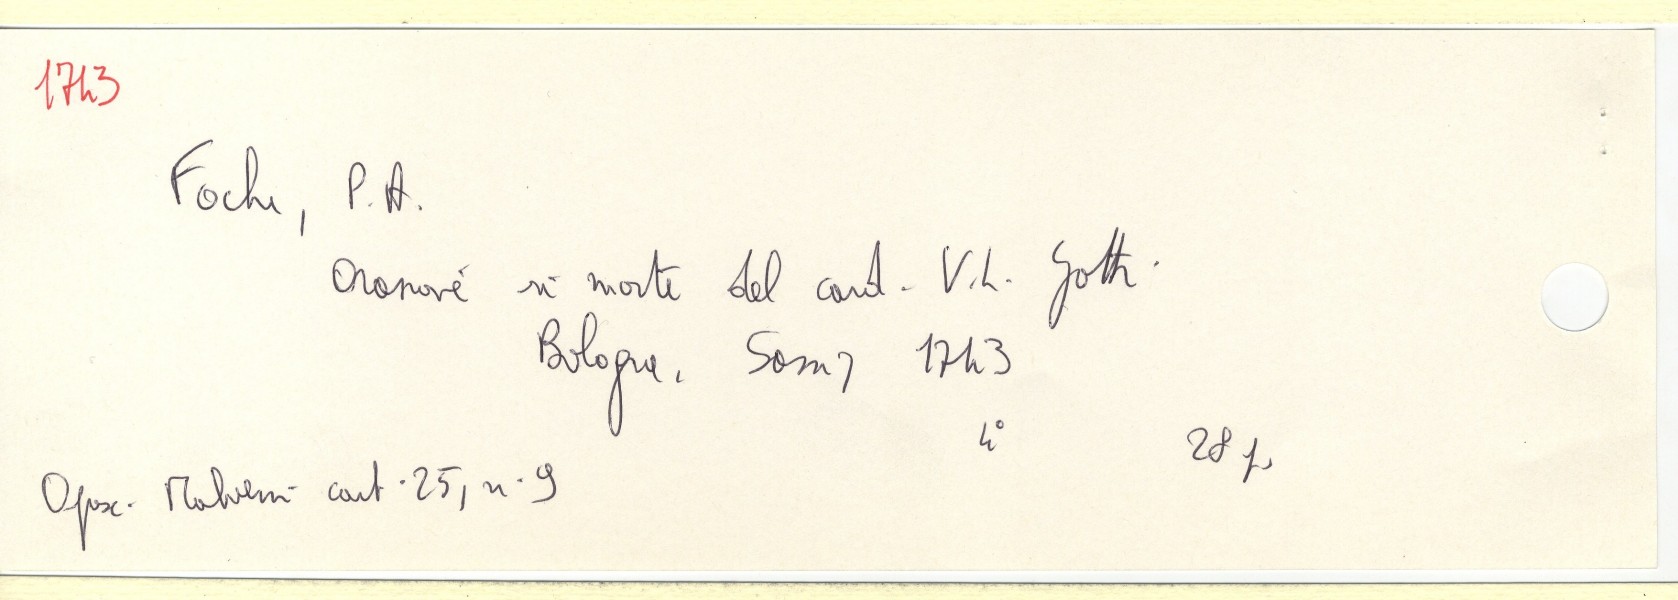 1743
Fochi, P. A.
Orazione in morte del card. V. L. Gotti.
Bologna, Sassi 1743
4° 28 p.
Opusc. Malvezzi cart. 25, n. 9